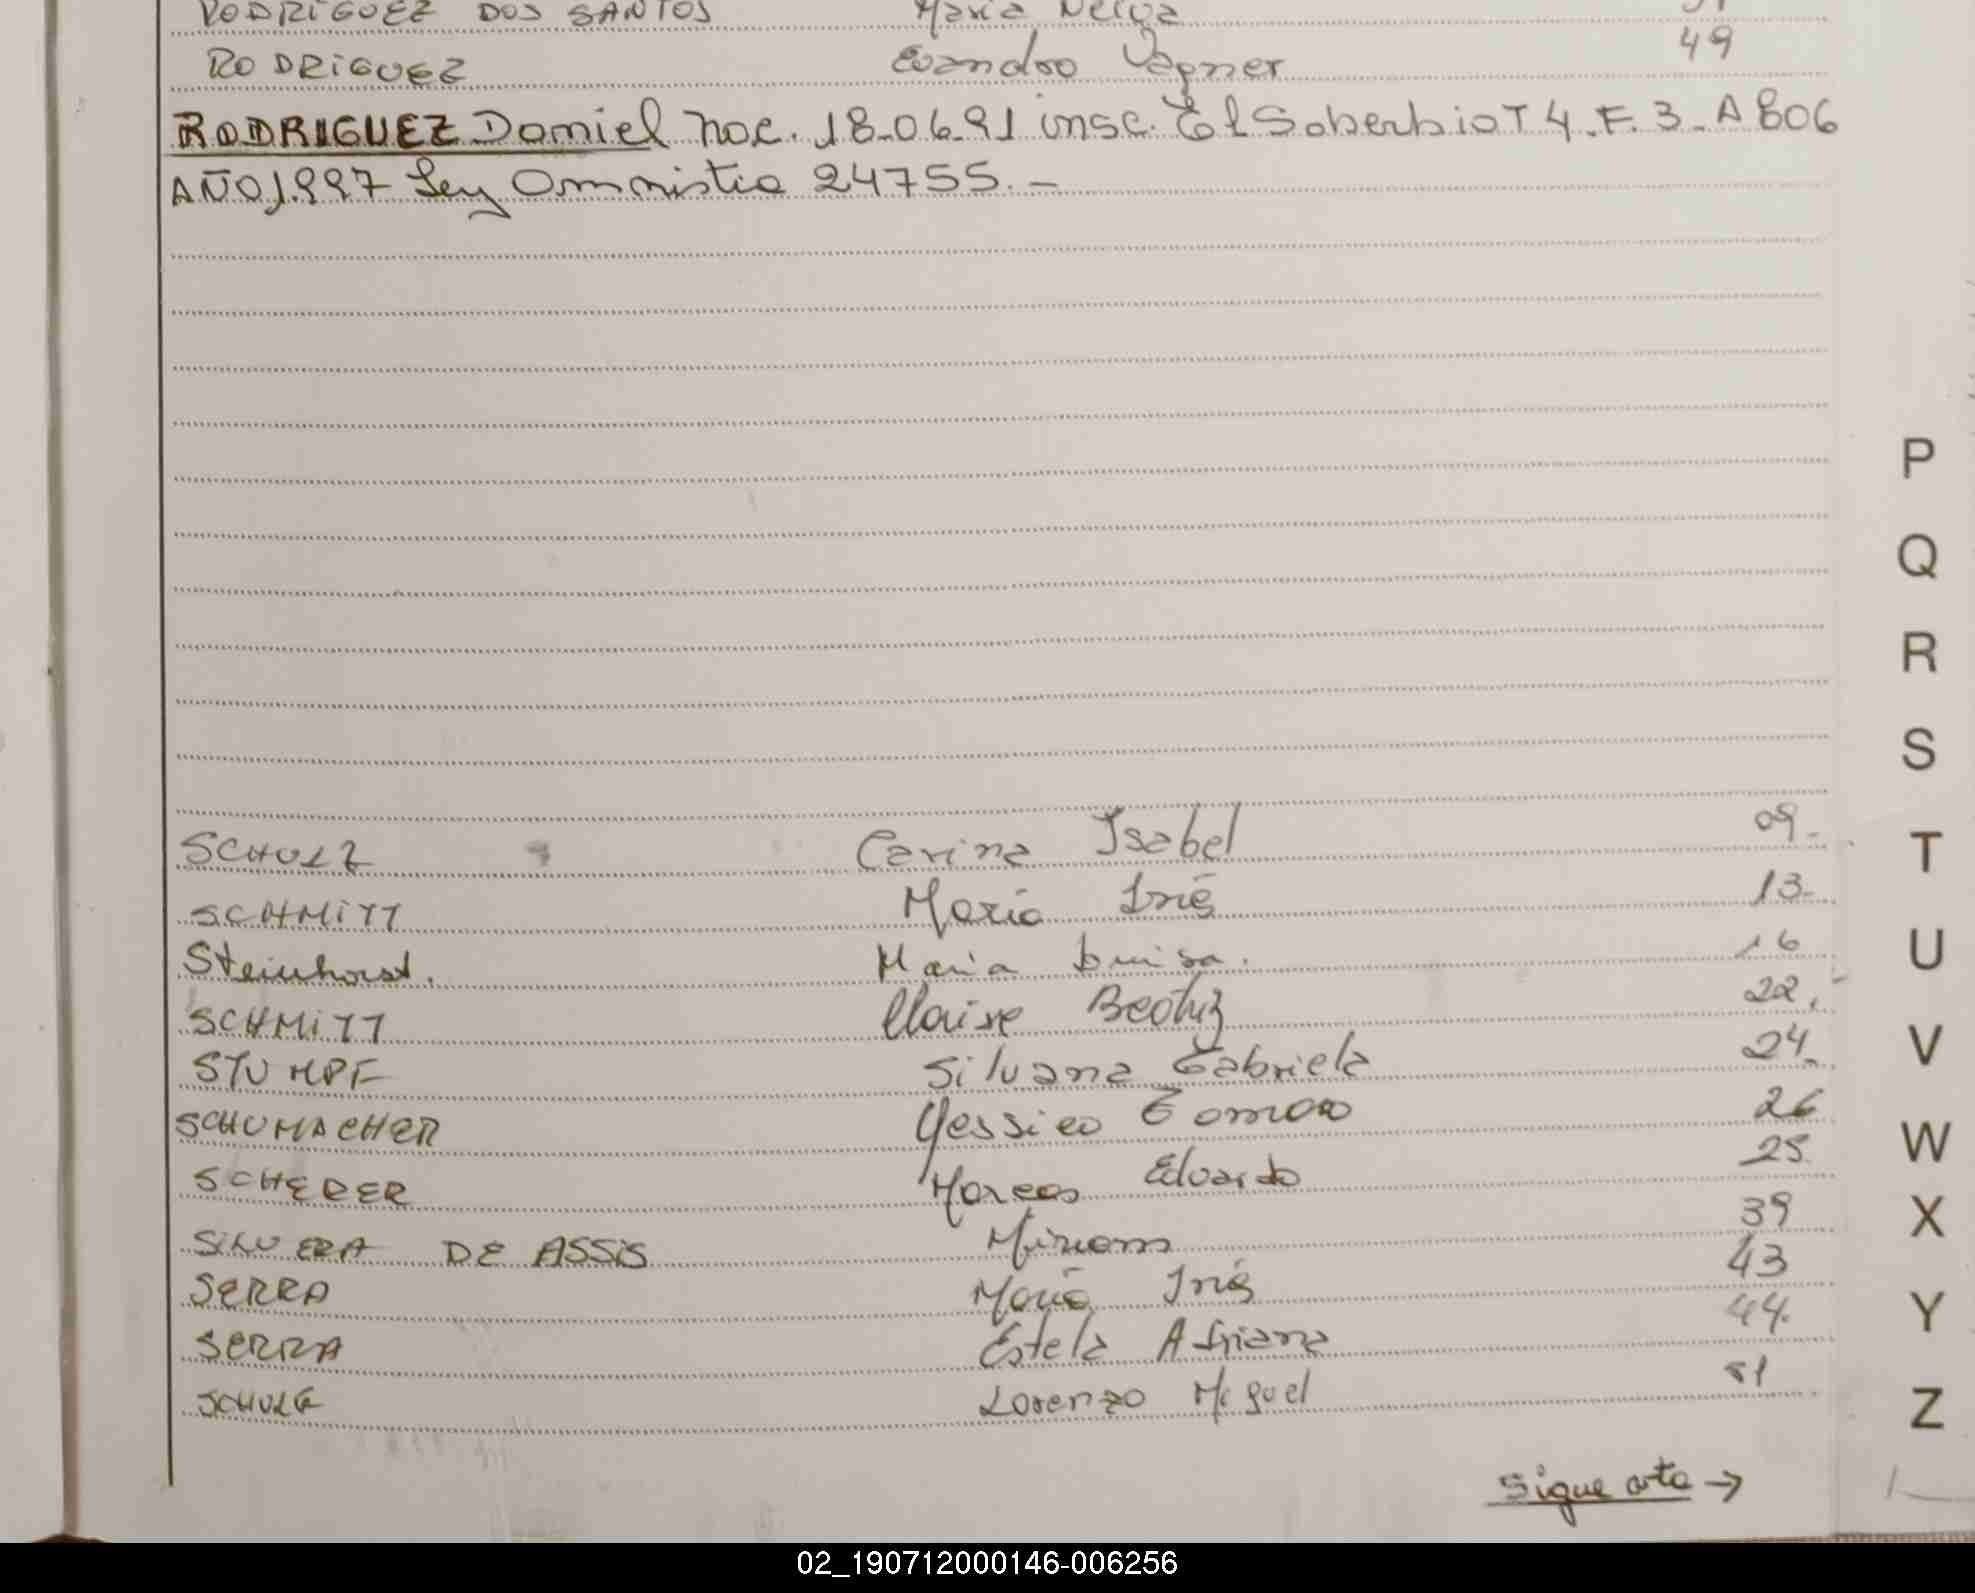 RODRIGUEZ DOS SANTOS Maria Neiva
RODRIGUEZ Evandro Vagner 49
RODRIGUEZ Daniel nac. 18-06-91 insc. El Soberbio T 4. F. 3 - A 806
AÑO 1.997 Ley Amnistia 24755. -
P
Q
R
S
SCHULZ Carina Isabel 09-
T
SCHMITT Maria Inés 13-
Steinhorst. Maria Luisa. 16
U
SCHMITT Claise Beatriz 22.-
STUMPF Silvana Gabriela 24
V
SCHUMACHER Yessica Tamara 26
SCHERER Marcos Eduardo 25
W
SILVERA DE ASSIS Miriam 39
X
SERRA Maria Inés 43
SERRA Estela Adriana 44.
Y
SCHULZ Lorenzo Miguel 51
Z
Sigue atrás →
02_190712000146-006256